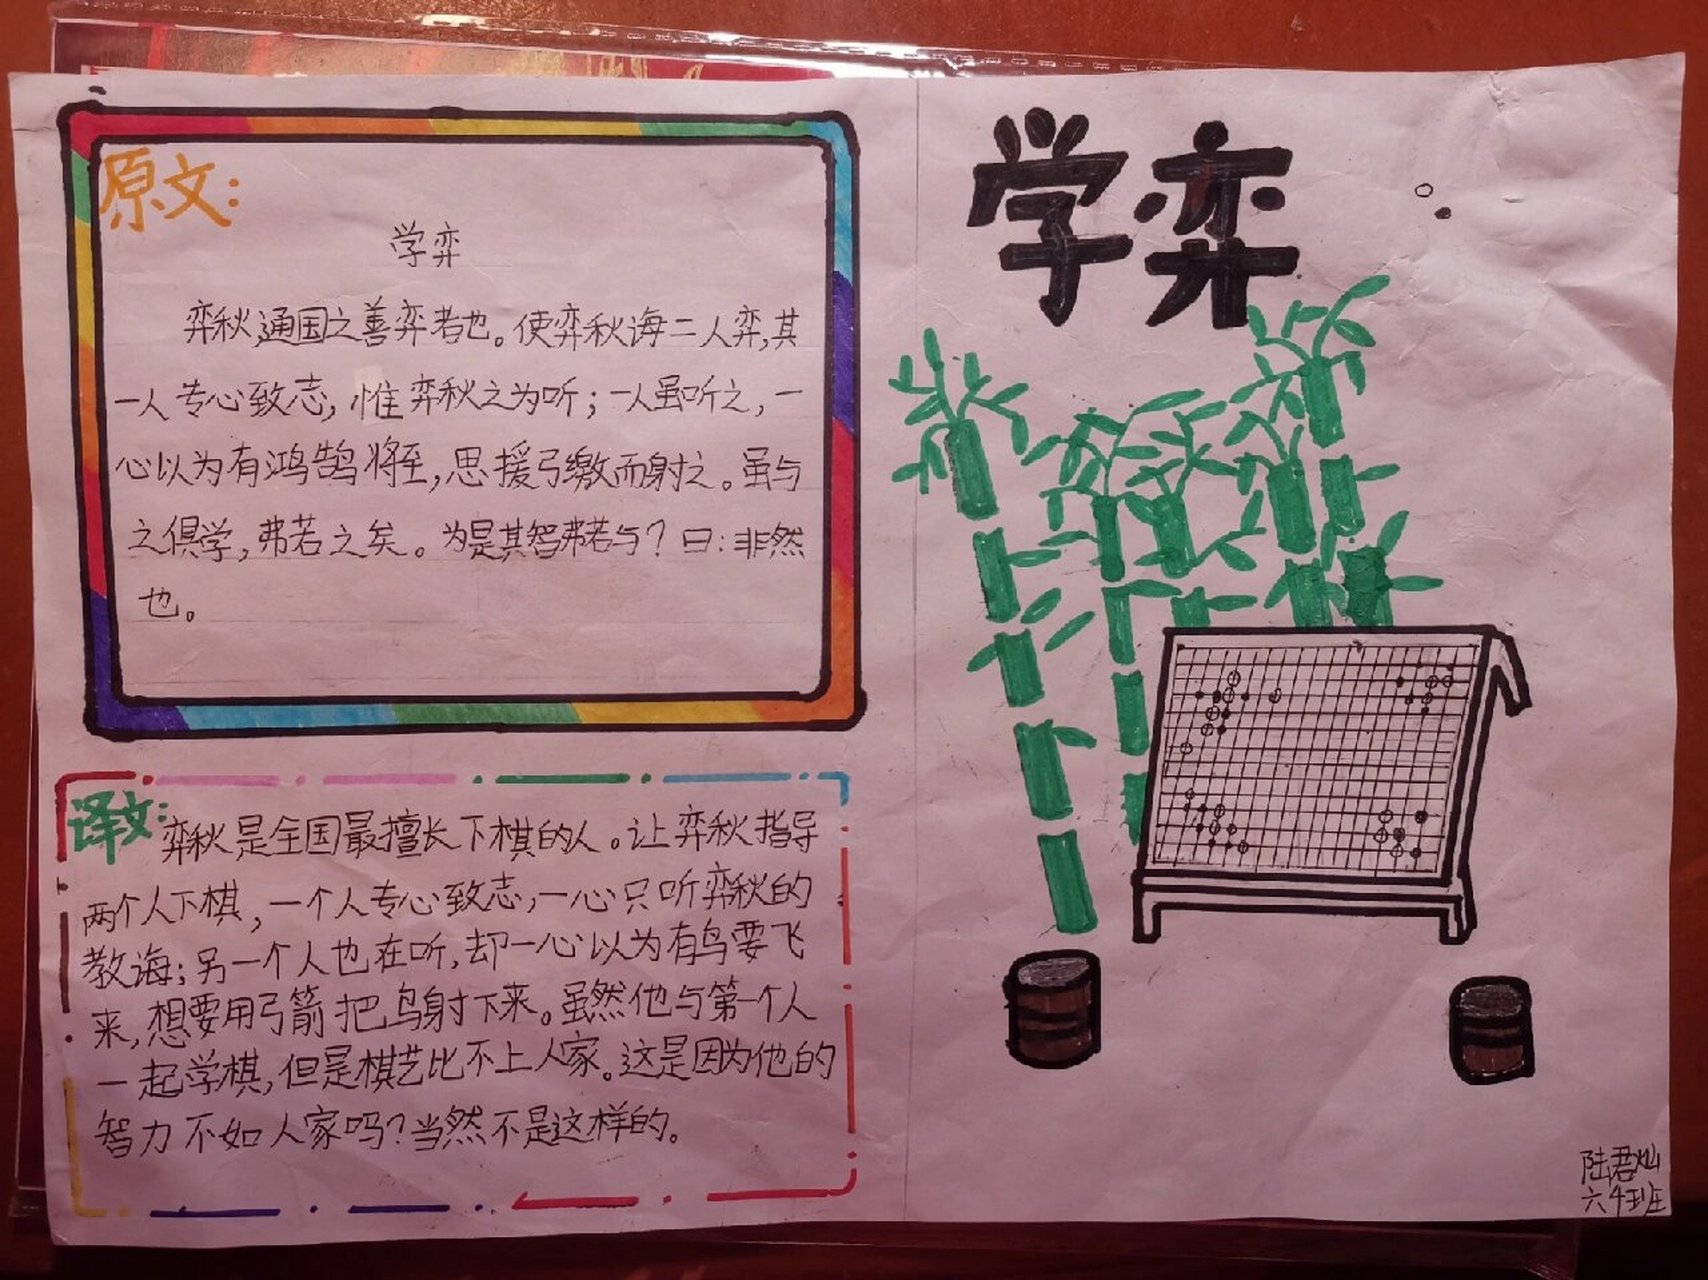 原文:
学弈
弈秋通国之善弈者也。使弈秋诲二人弈,其
一人专心致志,惟弈秋之为听;一人虽听之,一
心以为有鸿鹄将至,思援弓缴而射之。虽与
之俱学,弗若之矣。为是其智弗若与?曰:非然
也。
译文:
弈秋是全国最擅长下棋的人。让弈秋指导
两个人下棋,一个人专心致志,一心只听弈秋的
教诲;另一个人也在听,却一心以为有鸟要飞
来,想要用弓箭把鸟射下来。虽然他与第一个人
一起学棋,但是棋艺比不上人家。这是因为他的
智力不如人家吗?当然不是这样的。
学弈
陆君灿
六4班